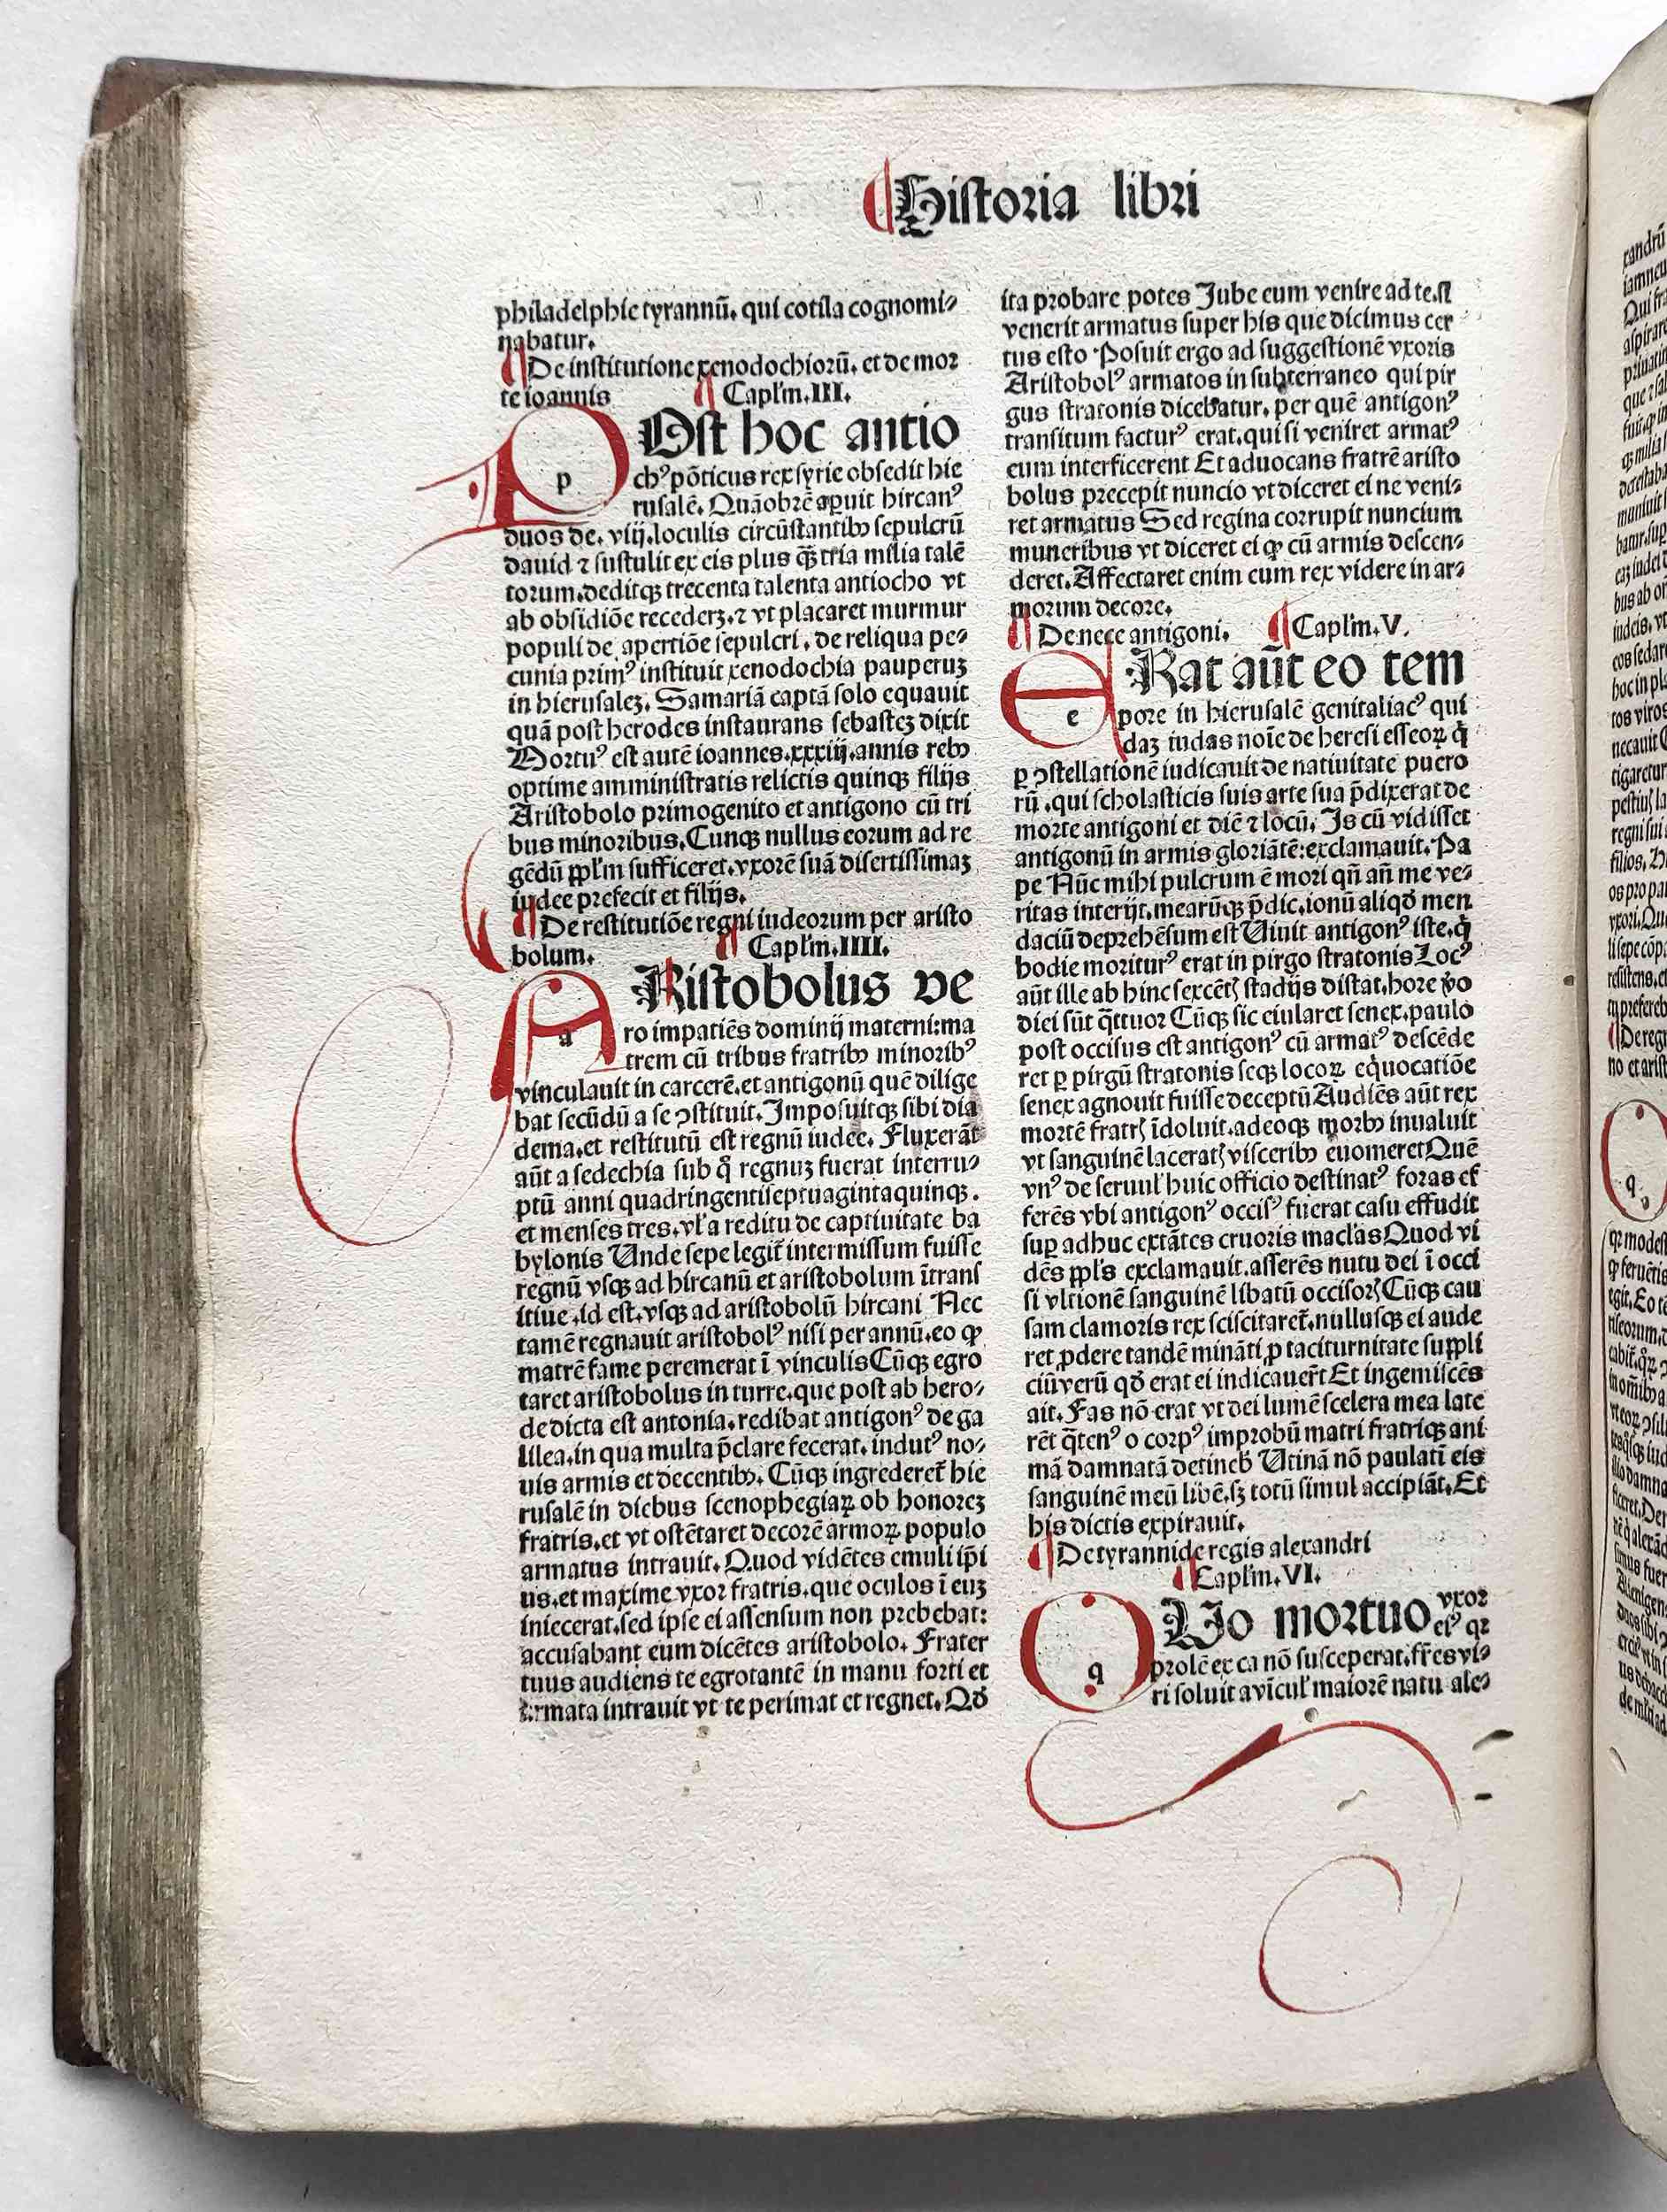 Historia libri
philadelphie tyrannū. qui cotila cognomi⸗
nabatur.
¶ De institutione xenodochiorū. et de mor
te ioannis ¶ Caplm.III.
p Ost hoc antio
chꝰ pōticus rex syrie obsedit hie
rusalē. Quāobrē aꝑuit hircanꝰ
duos de. viij. loculis circūstantibꝰ sepulcrū
dauid ⁊ sustulit ex eis plus qꝫ tria milia talē
torum. deditqꝫ trecenta talenta antiocho vt
ab obsidiōe recederꝫ. ⁊ vt placaret murmur
populi de apertiōe sepulcri. de reliqua pe⸗
cunia primꝰ instituit xenodochia pauperuꝫ
in hierusaleꝫ. Samariā captā solo equauit
quā post herodes instaurans sebasteꝫ dixit
Mortuꝰ est autē ioannes. xxxiij. annis rebꝰ
optime amministratis relictis quinqꝫ filijs
Aristobolo primogenito et antigono cū tri
bus minoribus. Cunqꝫ nullus eorum ad re
gēdū ppl̄m sufficeret. vxorē suā disertissimaꝫ
iudee prefecit et filijs.
¶ De restitutiōe regni iudeorum per aristo
bolum. ¶ Caplm.IIII.
a Ristobolus ve
ro impatiēs dominij materni: ma
trem cū tribus fratribꝰ minoribꝰ
vinculauit in carcerē. et antigonū quē dilige
bat secūdū a se ꝯstituit. Imposuitqꝫ sibi dia
dema. et restitutū est regnū iudee. Fluxerāt
aūt a sedechia sub q̊ regnuꝫ fuerat interru⸗
ptū anni quadringentiseptuagintaquinqꝫ.
et menses tres. vl̓ a reditu de captiuitate ba
bylonis Unde sepe legit̄ intermissum fuisse
regnū vsqꝫ ad hircanū et aristobolum ītrans
itiue. id est. vsqꝫ ad aristobolū hircani Nec
tamē regnauit aristobolꝰ nisi per annū. eo ꝙ
matrē fame peremerat ī vinculis Cūqꝫ egro
taret aristobolus in turre. que post ab hero⸗
de dicta est antonia. redibat antigonꝰ de ga
lilea. in qua multa p̄clare fecerat. indutꝰ no⸗
uis armis et decentibꝰ. Cūqꝫ ingrederet̄ hie
rusalē in diebus scenophegiaꝝ ob honoreꝫ
fratris. et vt ostētaret decorē armoꝝ populo
armatus intrauit. Quod vidētes emuli ip̄i
us. et maxime vxor fratris. que oculos ī euꝫ
iniecerat. sed ipse ei assensum non prebebat:
accusabant eum dicētes aristobolo. Frater
tuus audiens te egrotantē in manu forti et
armata intrauit vt te perimat et regnet. Qd̓
ita probare potes Jube eum venire ad te. si
venerit armatus super his que dicimus cer
tus esto Posuit ergo ad suggestionē vxoris
Aristobolꝰ armatos in subterraneo qui pir
gus stratonis dicebatur. per quē antigonꝰ
transitum facturꝰ erat. qui si veniret armatꝰ
eum interficerent Et aduocans fratrē aristo
bolus precepit nuncio vt diceret ei ne veni⸗
ret armatus Sed regina corrupit nuncium
muneribus vt diceret ei ꝙ cū armis descen⸗
deret. Affectaret enim eum rex videre in ar⸗
morum decore.
¶ De nece antigoni. ¶ Caplm.V.
e Rat aūt eo tem
pore in hierusalē genitaliacꝰ qui
daꝫ iudas noīe de heresi esseoꝝ q̇
ꝑ ꝯstellationē iudicauit de natiuitate puero
rū. qui scholasticis suis arte sua p̄dixerat de
morte antigoni et diē ⁊ locū. Is cū vidisset
antigonū in armis gloriātē: exclamauit. Pa
pe Nūc mihi pulcrum ē mori qn̄ an̄ me ve⸗
ritas interijt. mearūqꝫ p̄dic̨ionū aliqd̓ men
daciū deprehēsum est Uiuit antigonꝰ iste. q̇
hodie moriturꝰ erat in pirgo stratonis Locꝰ
aūt ille ab hinc sexcētꝭ stadijs distat. hore v̊o
diei sūt q̄ttuor Cūqꝫ sic eiularet senex. paulo
post occisus est antigonꝰ cū armatꝰ descēde
ret ꝑ pirgū stratonis seqꝫ locoꝝ equocatiōe
senex agnouit fuisse deceptū Audiēs aūt rex
mortē fratrꝭ īdoluit. adeoqꝫ morbꝰ inualuit
vt sanguinē laceratꝭ visceribꝰ euomeret Quē
vnꝰ de seruul̓ huic officio destinatꝰ foras ef
ferēs vbi antigonꝰ occisꝰ fuerat casu effudit
suꝑ adhuc extātes cruoris macl̓as Quod vi
dēs ppl̓s exclamauit. asserēs nutu dei ī occi
si vltionē sanguinē libatū occisorꝭ Cūqꝫ cau
sam clamoris rex sciscitaret̄. nullusqꝫ ei aude
ret ꝓdere tandē mināti ꝓ taciturnitate suppli
ciū verū qd̓ erat ei indicauer̄t Et ingemiscēs
ait. Fas nō erat vt dei lumē scelera mea late
rēt q̄tenꝰ o corpꝰ improbū matri fratriqꝫ ani
mā damnatā detineb̓ Utinā nō paulatī eis
sanguinē meū libē. sꝫ totū simul accipiāt. Et
his dictis expirauit.
¶ De tyrannide regis alexandri
¶ Caplm.VI.
q Uo mortuo vxor
eiꝰ qꝛ
prolē ex ea nō susceperat. fr̄es vi⸗
ri soluit a vīcul̓ maiorē natu ale⸗